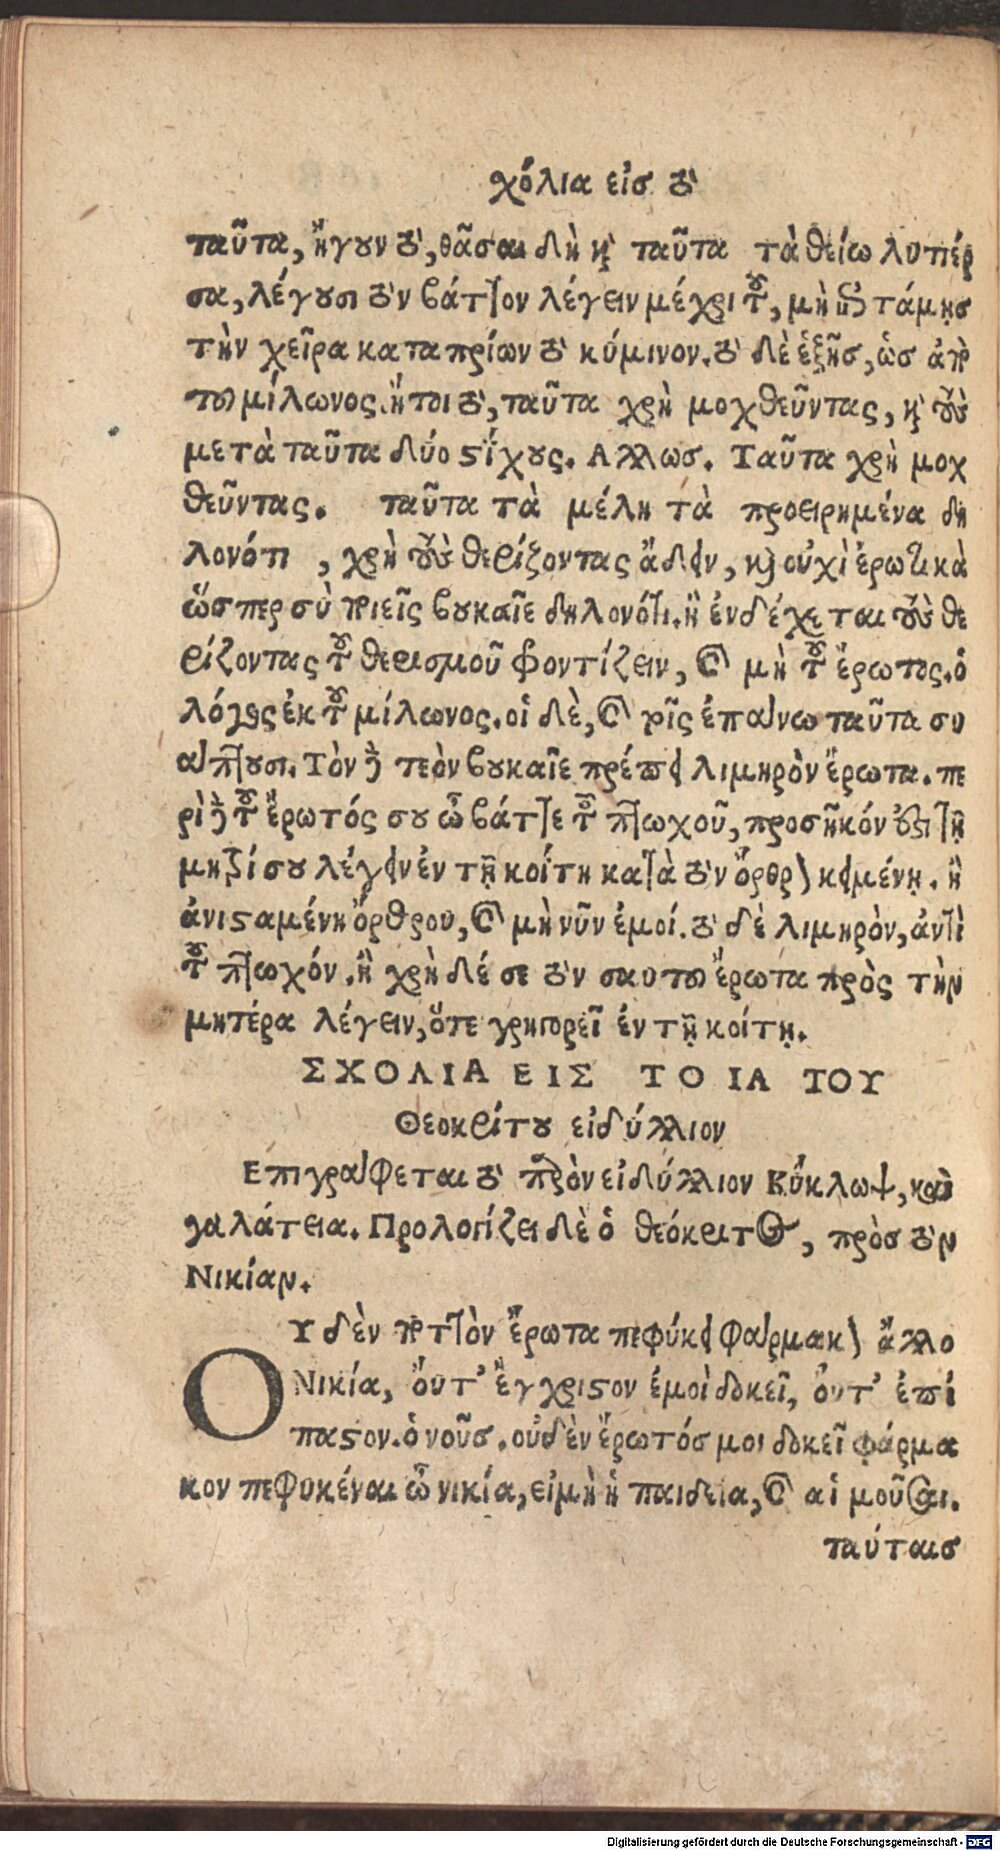 χόλια εἰσ τὸ
ταῦτα, ἤγουν τὸ, θᾶσαι δὴ καὶ ταῦτα τὰ θείω λυτιέρ
σα, λέγουσι τὸν βάττον λέγειν μέχρι τοῦ, μὴ τάμῃσ
τὴν χεῖρα καταπρίων τὸ κύμινον. τὸ δὲ ἑξῆσ, ὡσ ἀπὸ
τοῦ μίλωνος. ἤτοι τὸ, ταῦτα χρὴ μοχθεῦντας, καὶ τοὺς
μετὰ ταῦτα δύο στίχους. Αλλωσ. Ταῦτα χρὴ μοχ
θεῦντας. ταῦτα τὰ μέλη τὰ προειρημένα δη
λονότι , χρὴ τοὺς θερίζοντας ἄδειν, καὶ οὐχὶ ἐρωτικὰ
ὥσπερ σὺ ποιεῖς βουκαῖε δηλονότι. ἢ ἐνδέχεται τοὺς θε
ρίζοντας τοῦ θερισμοῦ φροντίζειν, καὶ μὴ τοῦ ἔρωτος. ὁ
λόγος ἐκ τοῦ μίλωνος. οἱ δὲ, καὶ τοῖς ἐπάνω ταῦτα συ
άπτουσι. Τὸν δὲ τεὸν βουκαῖε πρέπει λιμηρὸν ἔρωτα. πε
ρὶ δὲ τοῦ ἔρωτός σου ὦ βάττε τοῦ πτωχοῦ, προσῆκόν ἐστι τῇ
μητρί σου λέγειν ἐν τῇ κοίτῃ κατὰ τὸν ὄρθρον κειμένῃ. ἢ
ἀνισταμένῃ ὄρθρου, καὶ μὴ νῦν ἐμοί. τὸ δὲ λιμηρὸν, ἀντὶ
τοῦ πτωχόν. ἢ χρὴ δέ σε τὸν σαυτοῦ ἔρωτα πρὸς τὴν
μητέρα λέγειν, ὅτε γρηγορεῖ ἐν τῇ κοίτῃ.
ΣΧΟΛΙΑ ΕΙΣ ΤΟ ΙΑ ΤΟΥ
Θεοκρίτου εἰδύλλιον
Επιγράφεται τὸ παρὸν εἰδύλλιον Κύκλωψ, καὶ
γαλάτεια. Προλογίζει δὲ ὁ θεόκριτος, πρὸσ τὸν
Νικίαν.
ΟΥδὲν ποττὸν ἔρωτα πεφύκει φάρμακον ἄλλο
Νικία, ὄυτ' ἔγχριστον ἐμοὶ δοκεῖ, ὄυτ' ἐπί
παστον. ὁ νοῦσ. οὐδὲν ἔρωτόσ μοι δοκεῖ φάρμα
κον πεφυκέναι ὦ νικία, εἰμὴ ἡ παιδεία, καὶ αἱ μοῦσαι.
ταύταισ
Digitalisierung gefördert durch die Deutsche Forschungsgemeinschaft - DFG